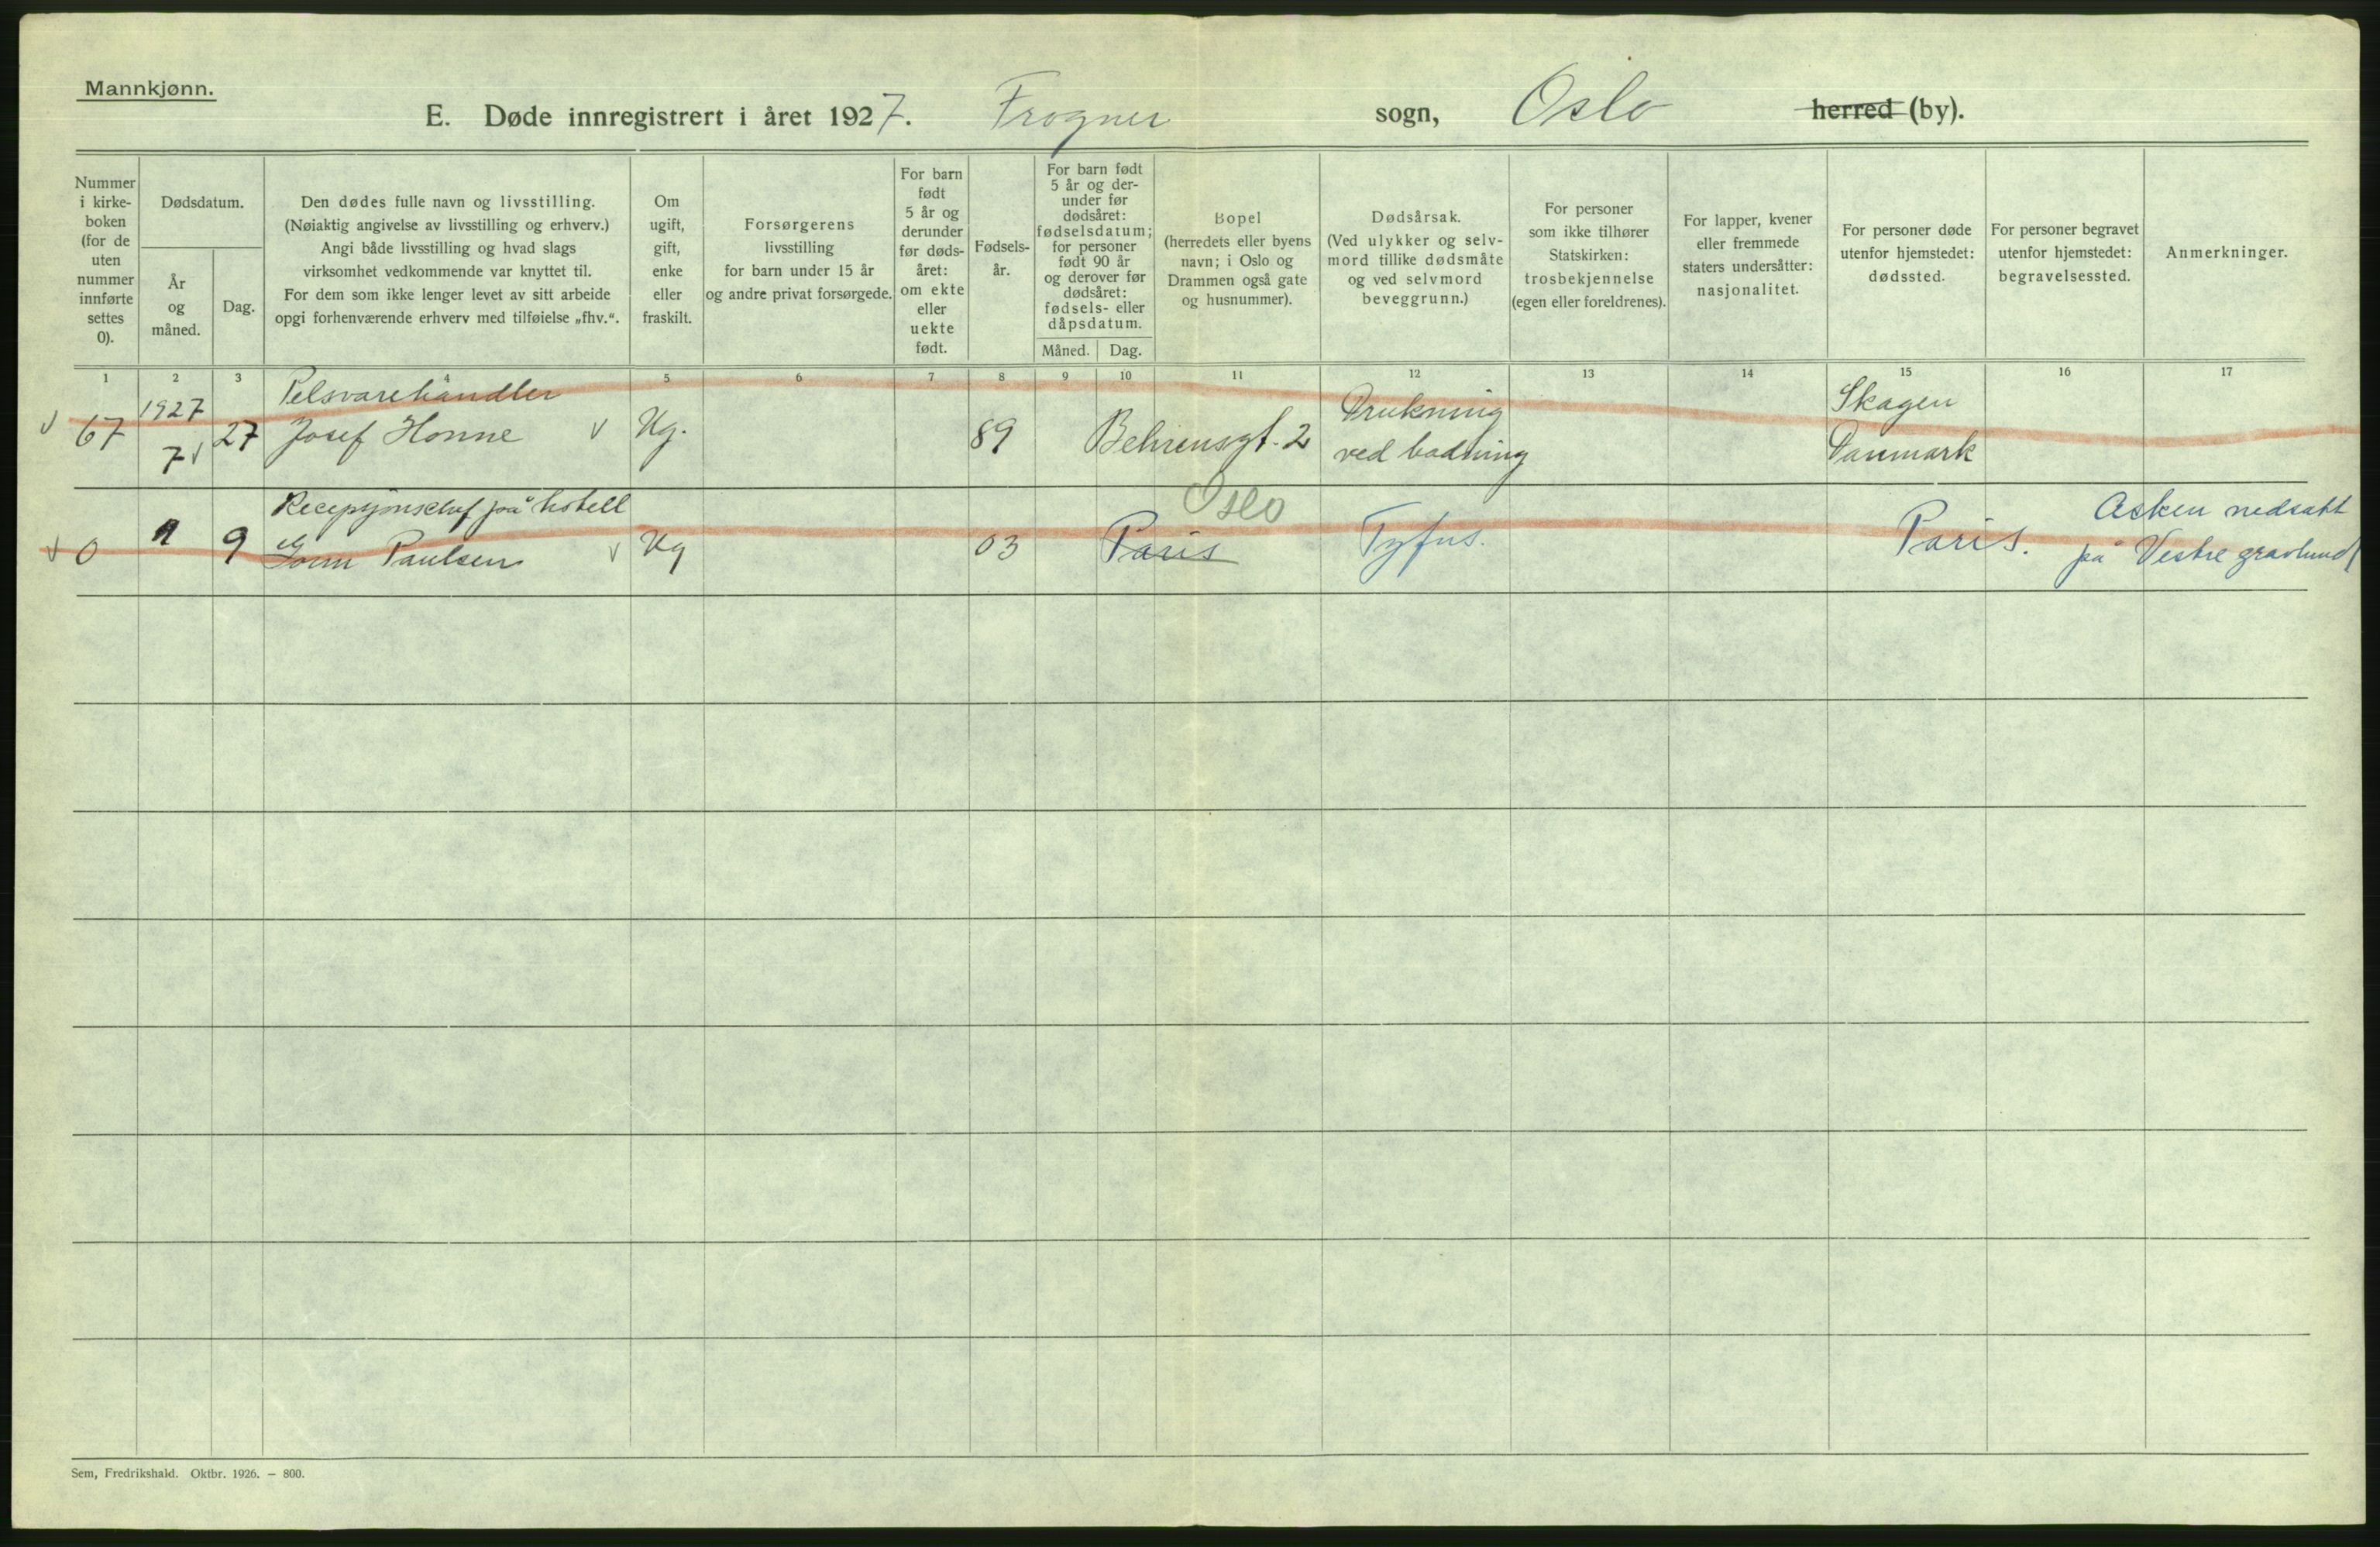 Mannkjønn.
E. Døde innregistrert i året 1927. Frogner sogn, Oslo herred (by).
Nummer
i kirke-
boken
(for de
uten
nummer
innførte
settes
0).
Dødsdatum.
År
og
måned.
Dag.
Den dødes fulle navn og livsstilling.
(Nøiaktig angivelse av livsstilling og erhverv.)
Angi både livsstilling og hvad slags
virksomhet vedkommende var knyttet til.
For dem som ikke lenger levet av sitt arbeide
opgi forhenværende erhverv med tilføielse „fhv.“.
Om
ugift,
gift,
enke
eller
fraskilt.
Forsørgerens
livsstilling
for barn under 15 år
og andre privat forsørgede.
For barn
født
5 år og
derunder
før døds-
året:
om ekte
eller
uekte
født.
Fødsels-
år.
For barn født
5 år og der-
under før
dødsåret:
fødselsdatum;
for personer
født 90 år
og derover før
dødsåret:
fødsels- eller
dåpsdatum.
Måned. Dag.
Bopel
(herredets eller byens
navn; i Oslo og
Drammen også gate
og husnummer).
Dødsårsak.
(Ved ulykker og selv-
mord tillike dødsmåte
og ved selvmord
beveggrunn.)
For personer
som ikke tilhører
Statskirken:
trosbekjennelse
(egen eller foreldrenes).
For lapper, kvener
eller fremmede
staters undersåtter:
nasjonalitet.
For personer døde
utenfor hjemstedet:
dødssted.
For personer begravet
utenfor hjemstedet:
begravelsessted.
Anmerkninger.
1 2 3 4 5 6 7 8 9 10 11 12 13 14 15 16 17
1927 Pelsvarehandler Drukning Skagen
67 7 27 Josef Honne Ug. 89 Behrensgt. 2 ved badning Danmark
Recepsjonschef på hotell Oslo Asken nedsatt
0 9 Paulsen Ug 03 Paris Tyfus. Paris. på Vestre gravlund
Sem, Fredrikshald. Oktbr. 1926. — 800.